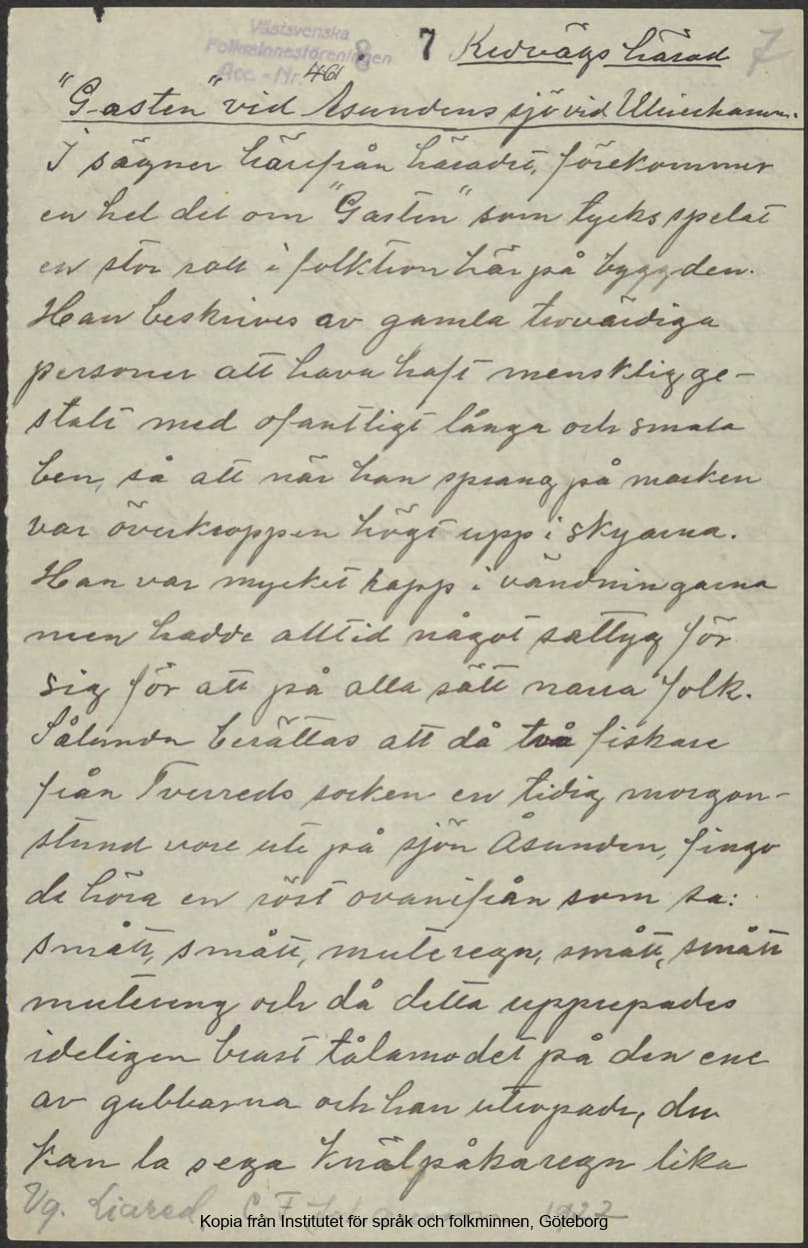 Västsvenska
Folkminnesföreningen
Acc. - Nr. 461
8 7 Redvägs härad 7
"Gasten" vid Åsundens sjö vid Ulricehamn.
I sägner härifrån häradet, förekommer
en hel del om "Gasten" som tycks spelat
en stor roll i folktron här på byggden.
Han beskrives av gamla trovärdiga
personer att hava haft mensklig ge-
stalt med ofantligt långa och smala
ben, så att när han sprang på marken
var överkroppen högt upp i skyarna.
Han var mycket rapp i vändningarna
men hadde alltid något sattyg för
sig för att på alla sätt narra folk.
Sålunda berättas att då två fiskare
från Tvärreds socken en tidig morgon-
stund vore ute på sjön Åsunden, fingo
de höra en röst ovanifrån som sa:
smått, smått, muteregn, smått, smått
och då detta upprepades
ideligen brast tålamodet på den ene
av gubbarna och han utropade, du
kan la sega knälpåkaregn lika
Vg. Liared, C. F. 1927
Kopia från Institutet för språk och folkminnen, Göteborg